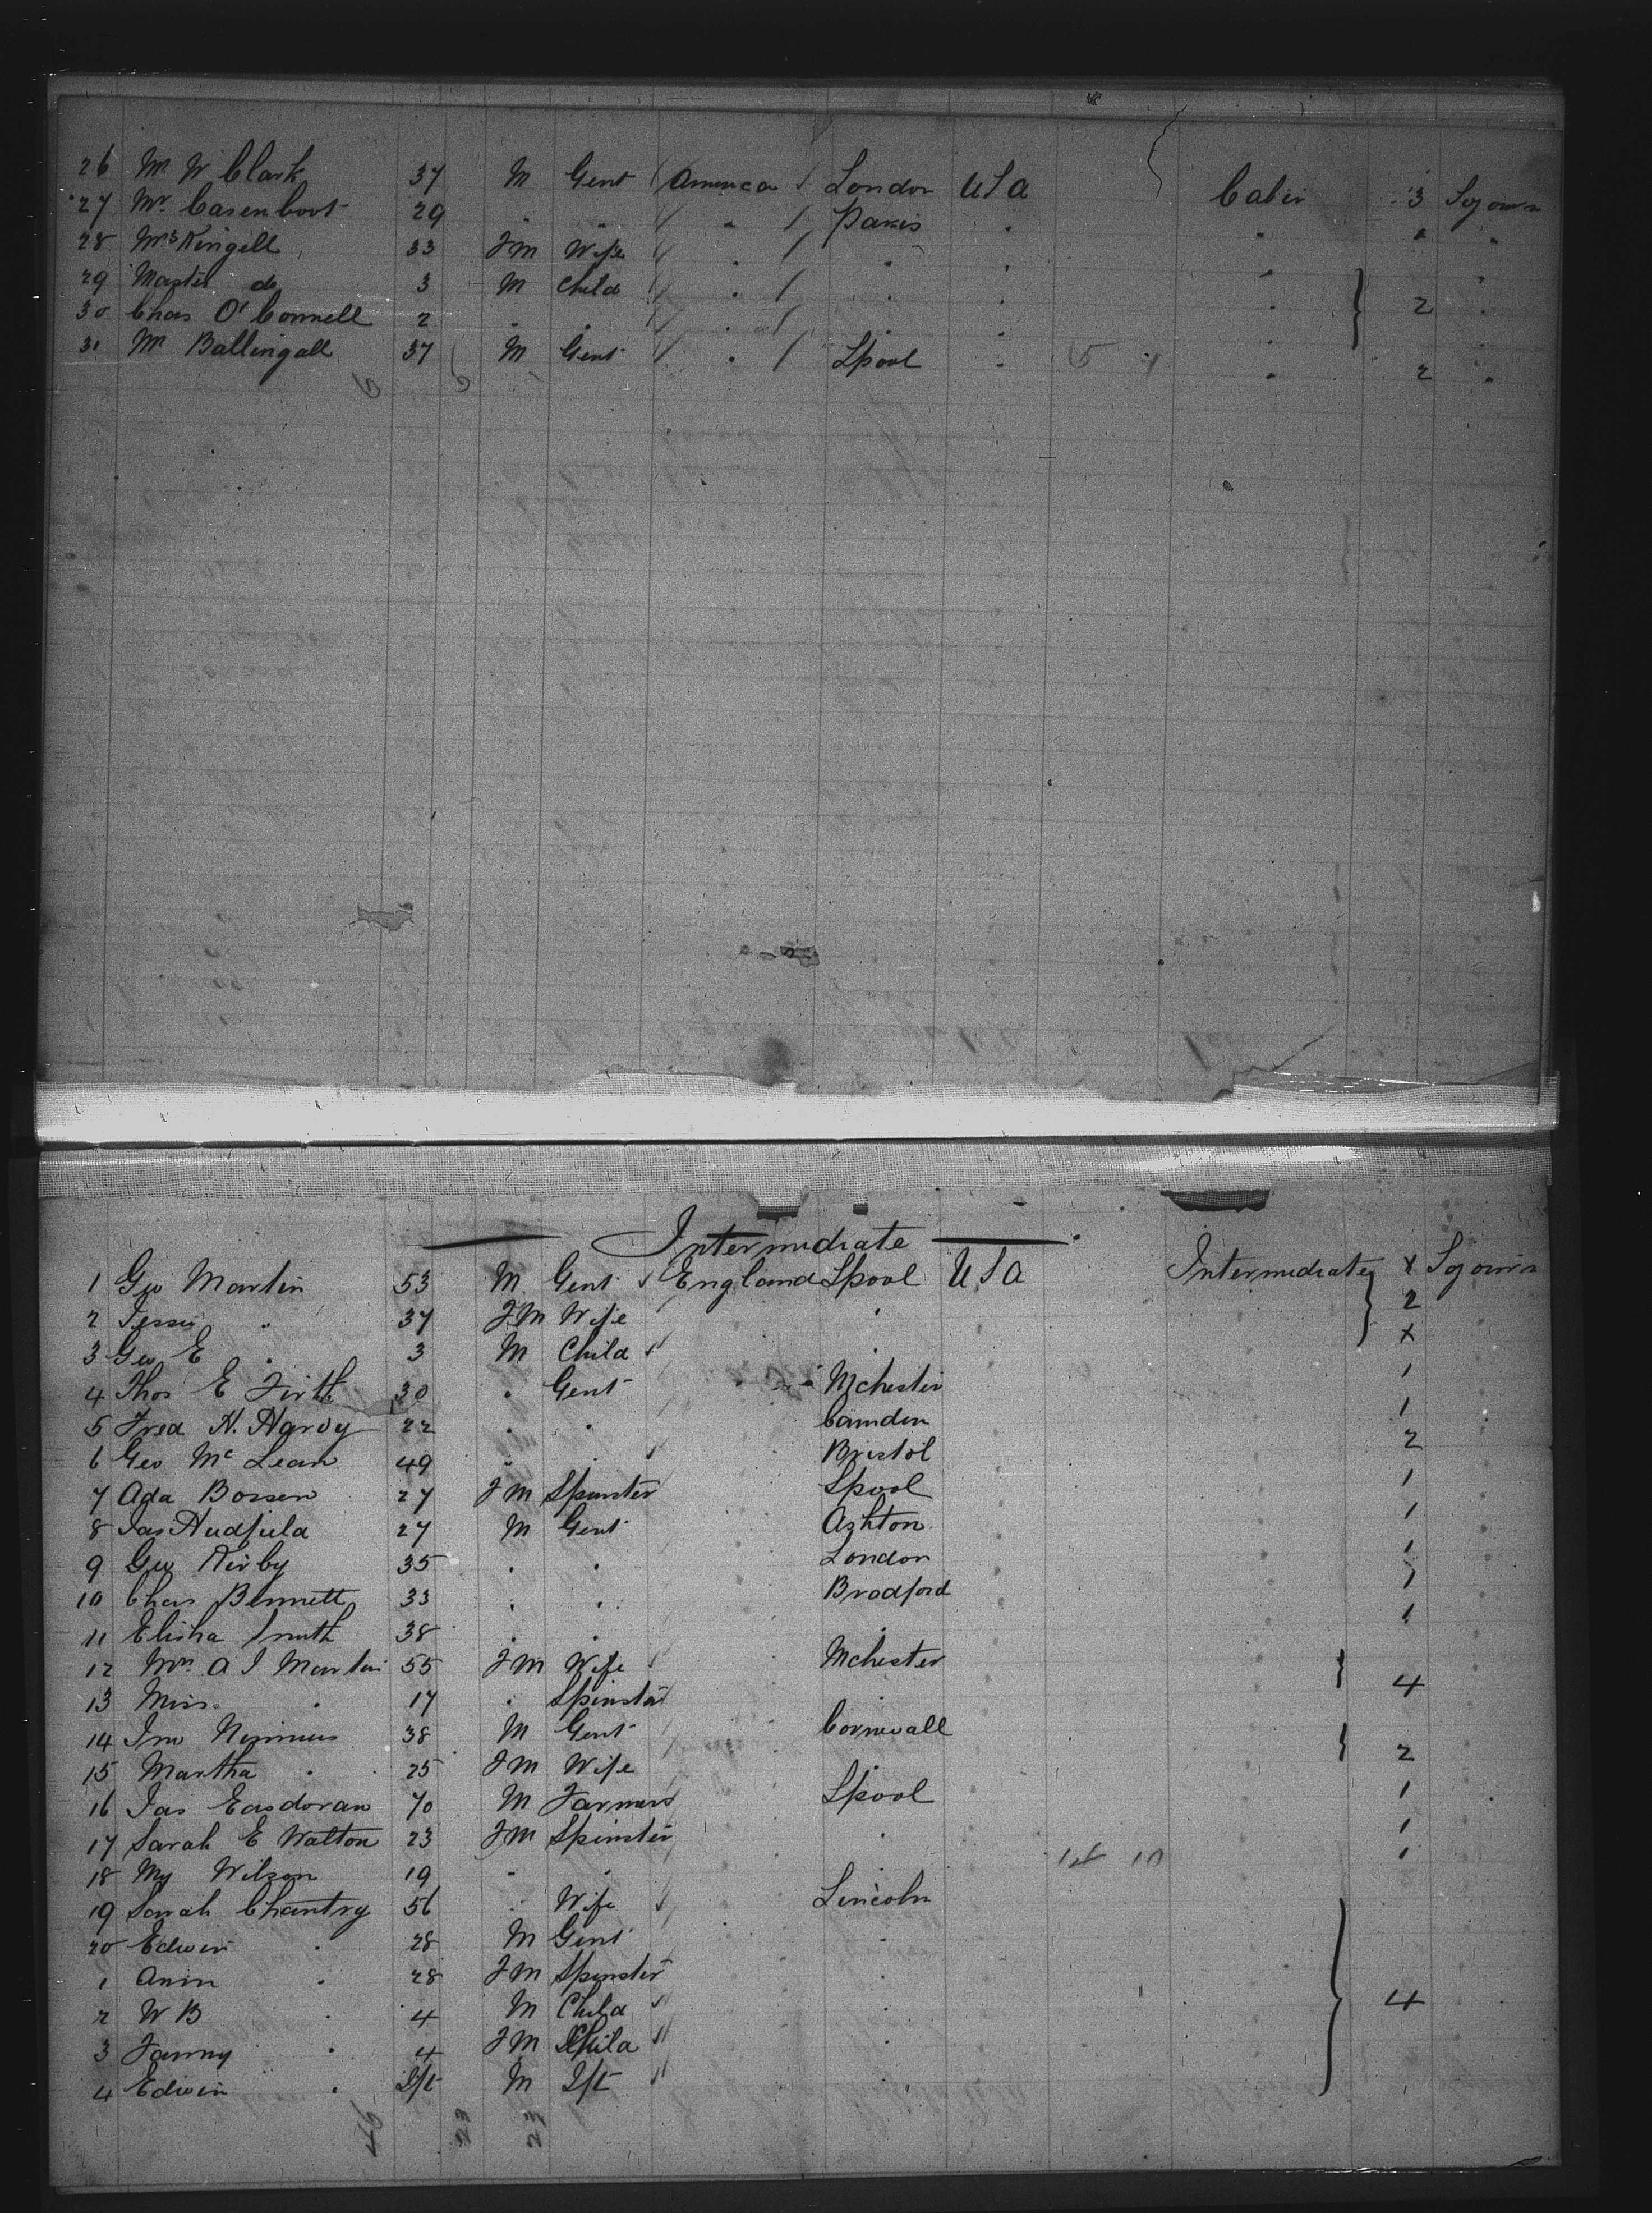 26 Mr. W Clark 37 M Gent America London USA Cabin 3 Sojourn
27 Mr. Casenboot 29 " " " Paris " " " "
28 Mrs Ringell 33 FM Wife " " " "
29 Master do 3 M Child " " " " 2 "
30 Chas O'Connell 2 " " " " " " "
31 Mr Ballingall 37 M Gent " Lpool " " 2 "
Intermediate
1 Geo Martin 53 M Gent England Lpool USA Intermediate x Sojourn
2 Jessie " 37 FM Wife " 2
3 Geo E " 3 M Child " x
4 Thos E Firth 30 " Gent " Mchester 1
5 Fred H. Hardy 22 " " Camden 1
6 Geo McLean 49 " " Bristol 2
7 Ada Bossen 27 FM Spinster Lpool 1
8 Jas Hudfield 27 M Gent Ashton 1
9 Geo Kirby 35 " " London 1
10 Chas Bennett 33 " " Bradford 1
11 Elisha Smith 38 " " " 1
12 Mrs A J Martin 55 FM Wife Mchester
13 Miss " 17 " Spinster " 4
14 Jno 38 M Gent Cornwall
15 Martha " 25 FM Wife " 2
16 Jas Easdoran 70 M Farmer Lpool 1
17 Sarah E Walton 23 FM Spinster " 1
18 My Wilson 19 " " 10 1
19 Sarah Chantry 56 " Wife Lincoln
20 Edwin " 28 M Gent "
1 Ann " 28 FM Spinster "
2 W B " 4 M Child " 4
3 Fanny " 4 FM Child "
4 Edwin " Ift M Ift "